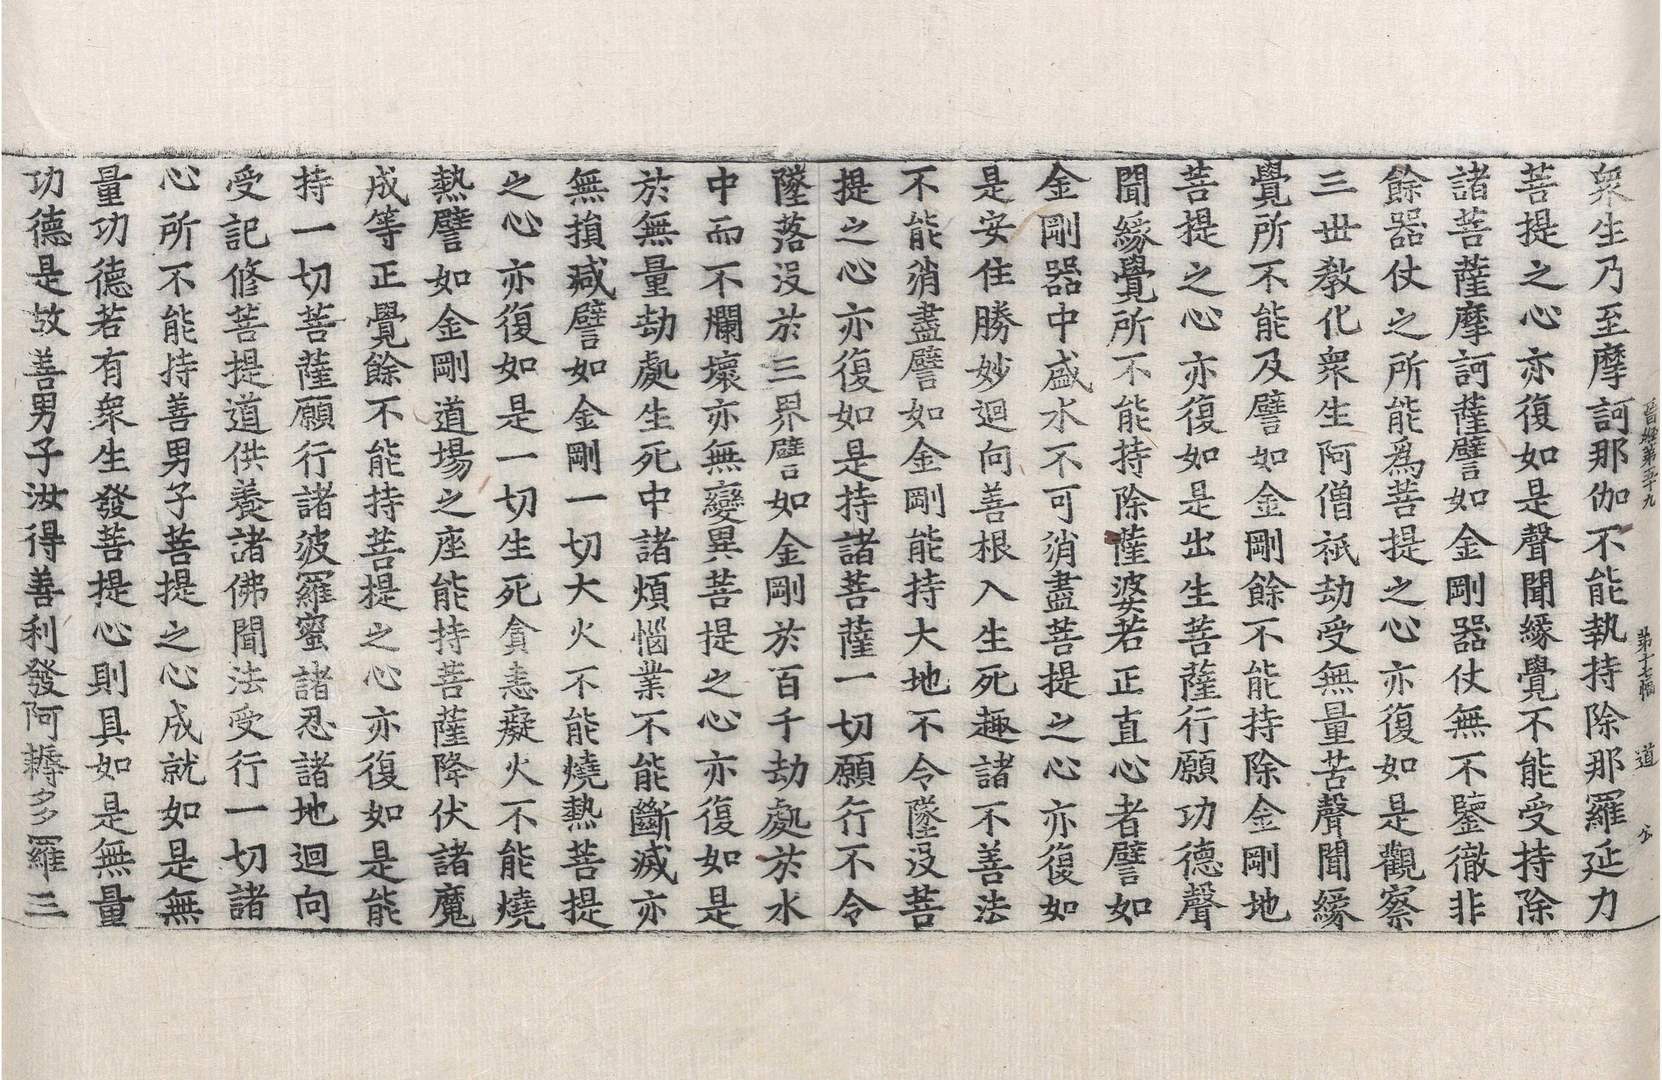 晉經第五十九 第十七幅 道 少
衆生乃至摩訶那伽不能執持除那羅延力
菩提之心亦復如是聲聞緣覺不能受持除
諸菩薩摩訶薩譬如金剛器仗無不鑒徹非
餘器仗之所能爲菩提之心亦復如是觀察
三世教化衆生阿僧祇劫受無量苦聲聞緣
覺所不能及譬如金剛餘不能持除金剛地
菩提之心亦復如是出生菩薩行願功德聲
聞緣覺所不能持除薩婆若正直心者譬如
金剛器中盛水不可消盡菩提之心亦復如
是安住勝妙迴向善根入生死趣諸不善法
不能消盡譬如金剛能持大地不令墜沒菩
提之心亦復如是持諸菩薩一切願行不令
墜落沒於三界譬如金剛於百千劫處於水
中而不爛壞亦無變異菩提之心亦復如是
於無量劫處生死中諸煩惱業不能斷滅亦
無損減譬如金剛一切大火不能燒熱菩提
之心亦復如是一切生死貪恚癡火不能燒
熱譬如金剛道場之座能持菩薩降伏諸魔
成等正覺餘不能持菩提之心亦復如是能
持一切菩薩願行諸波羅蜜諸忍諸地迴向
受記修菩提道供養諸佛聞法受行一切諸
心所不能持善男子菩提之心成就如是無
量功德若有衆生發菩提心則具如是無量
功德是故善男子汝得善利發阿耨多羅三